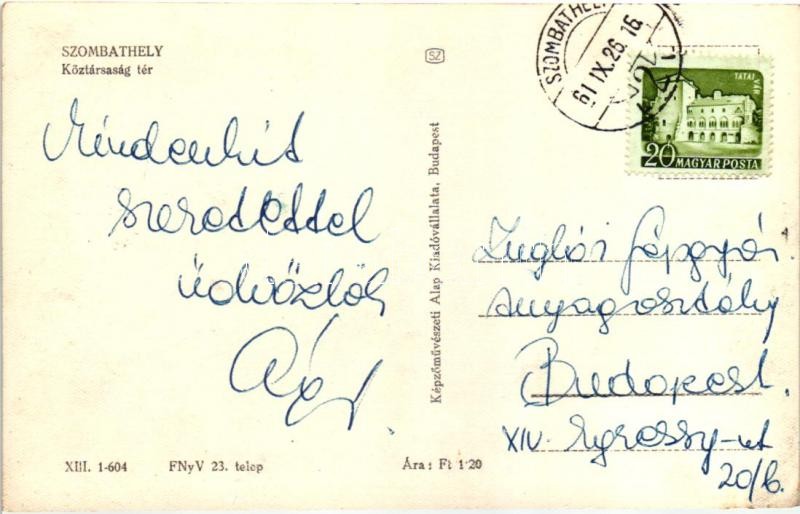 SZOMBATHELY
Köztársaság tér
Mindenkit
szeretettel
üdvözlök
SZ
Képzőművészeti Alap Kiadóvállalata, Budapest
SZOMBATHELY
61 IX. 26. 16
TATAI VÁR
20 MAGYAR POSTA
Zuglói Gépgyár
Anyagosztály
Budapest.
XIV. Egressy-ut
20/b.
XIII. 1-604 FNyV 23. telep Ára: Ft 1·20